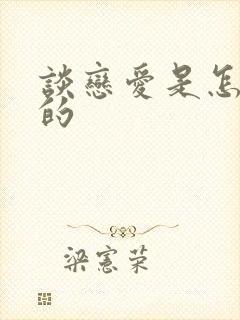 談戀愛是怎
的
梁憲榮